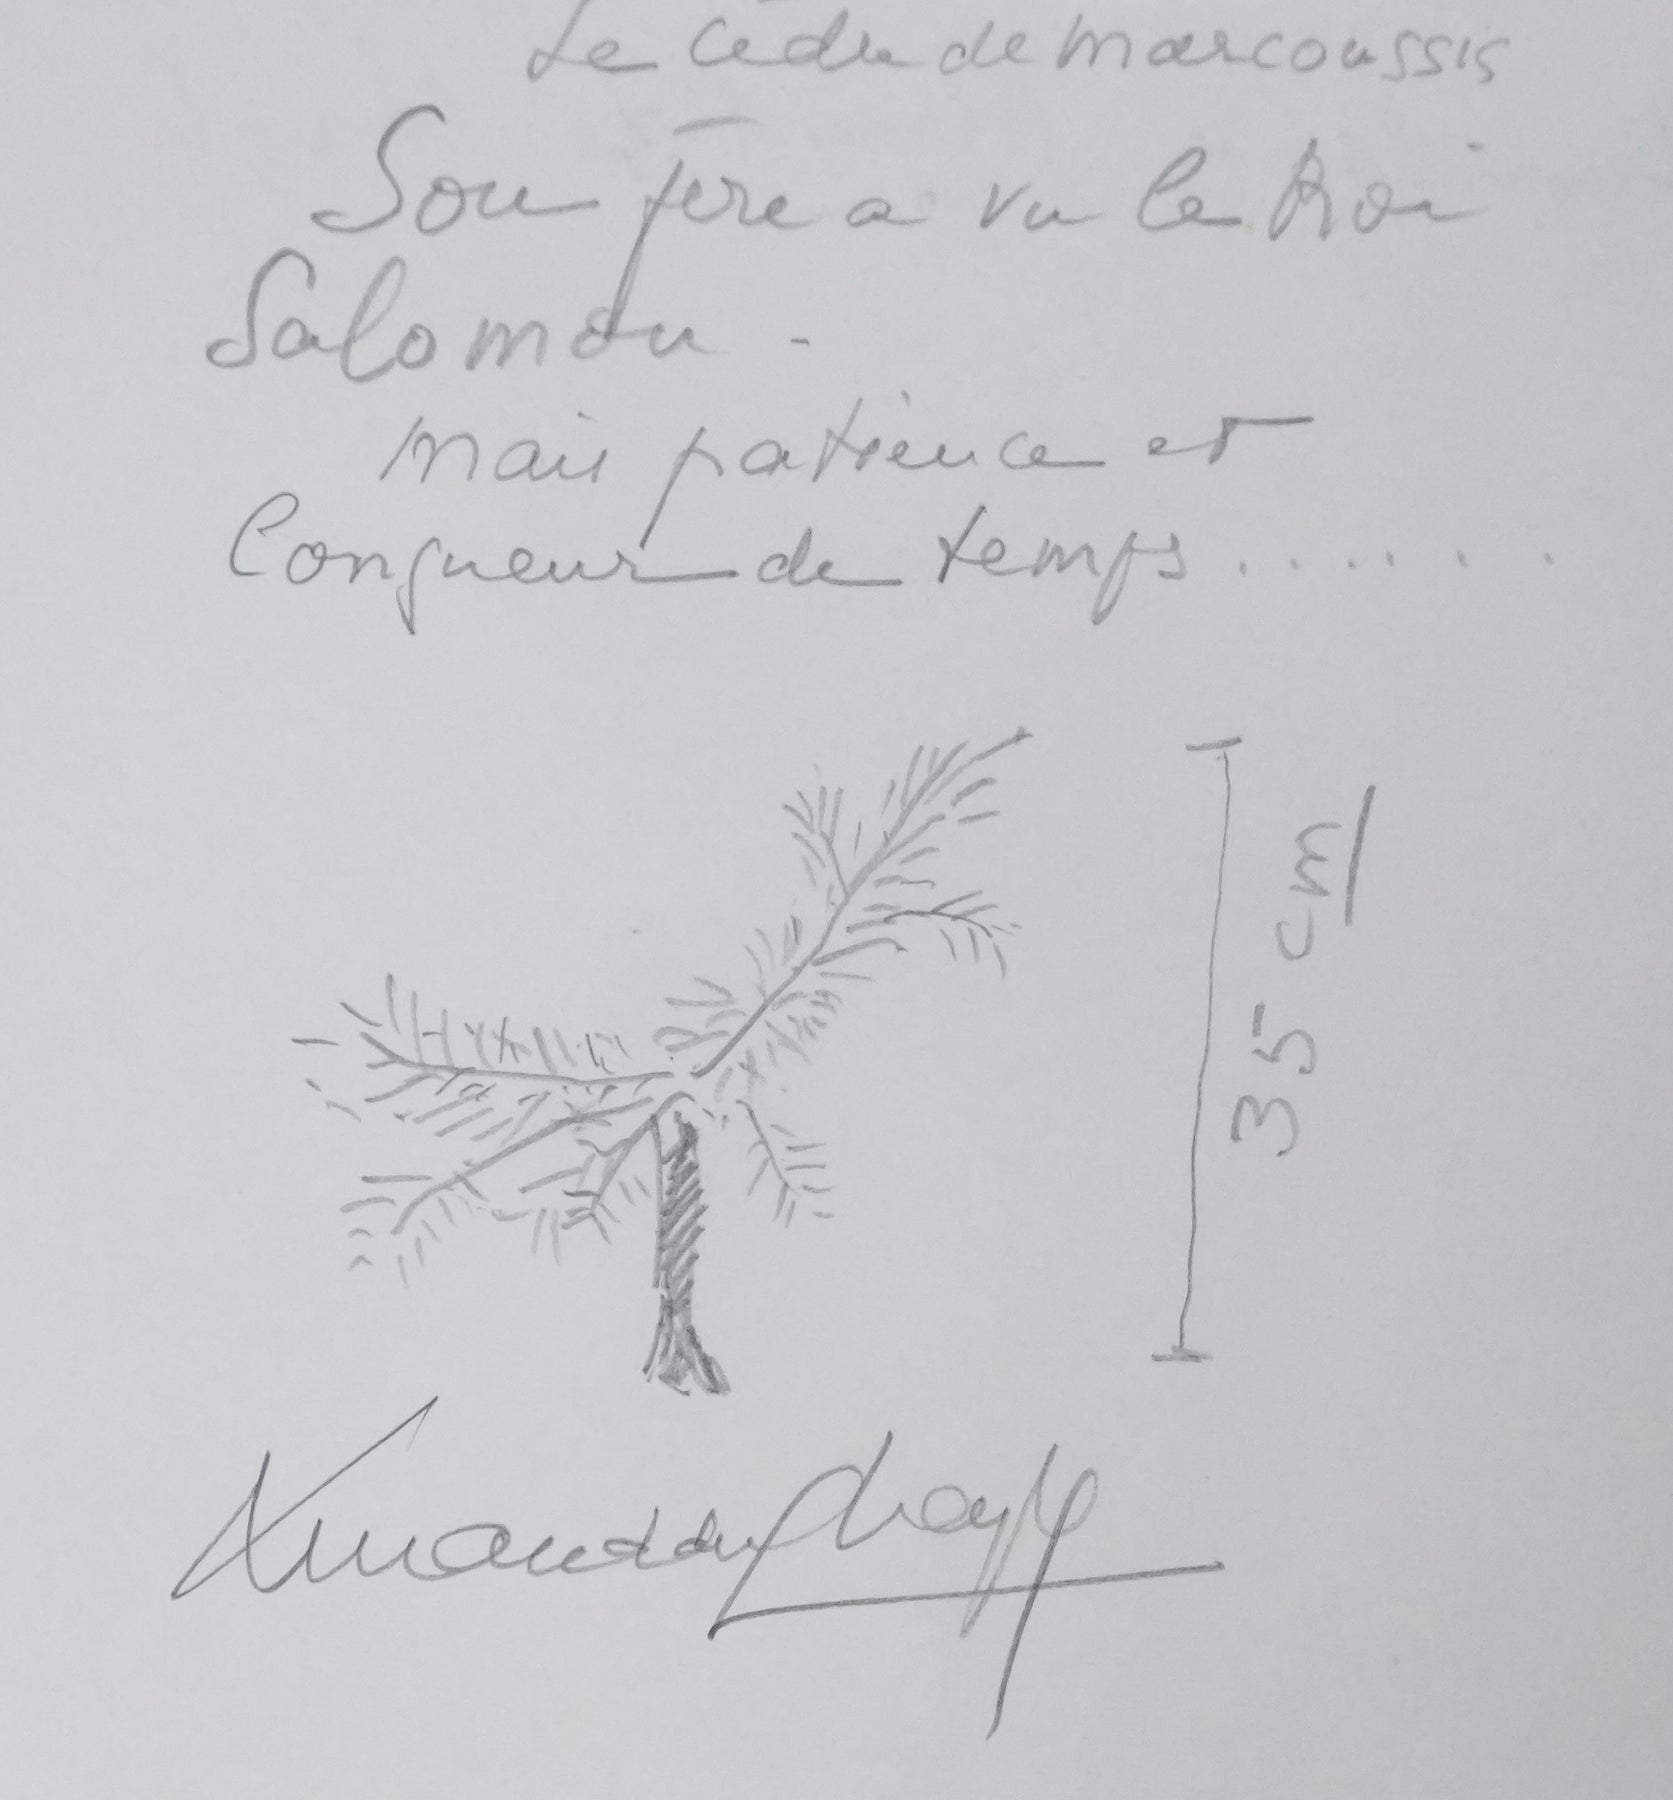 Le Cèdre de Marcoussis
Son père a vu le Roi
Salomon.
mais patience et
Longueur de temps.......
35 cm